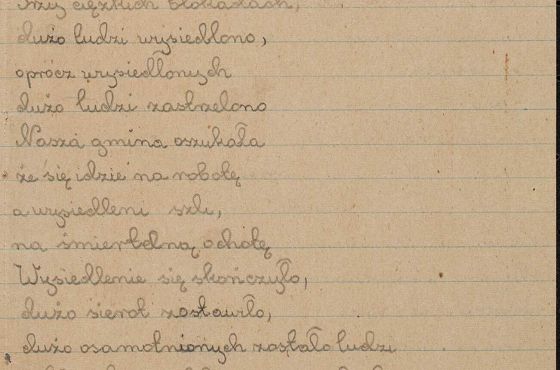 Przy ciężkich blokadach,
dużo ludzi wysiedlono,
oprócz wysiedlonych
dużo ludzi zastrzelono
Nasza gmina oszukała
że się idzie na robotę
a wysiedleni szli,
na śmiertelną ochotę
Wysiedlenie się skończyło,
dużo sierot zostawiło,
dużo osamotnionych zostało ludzi